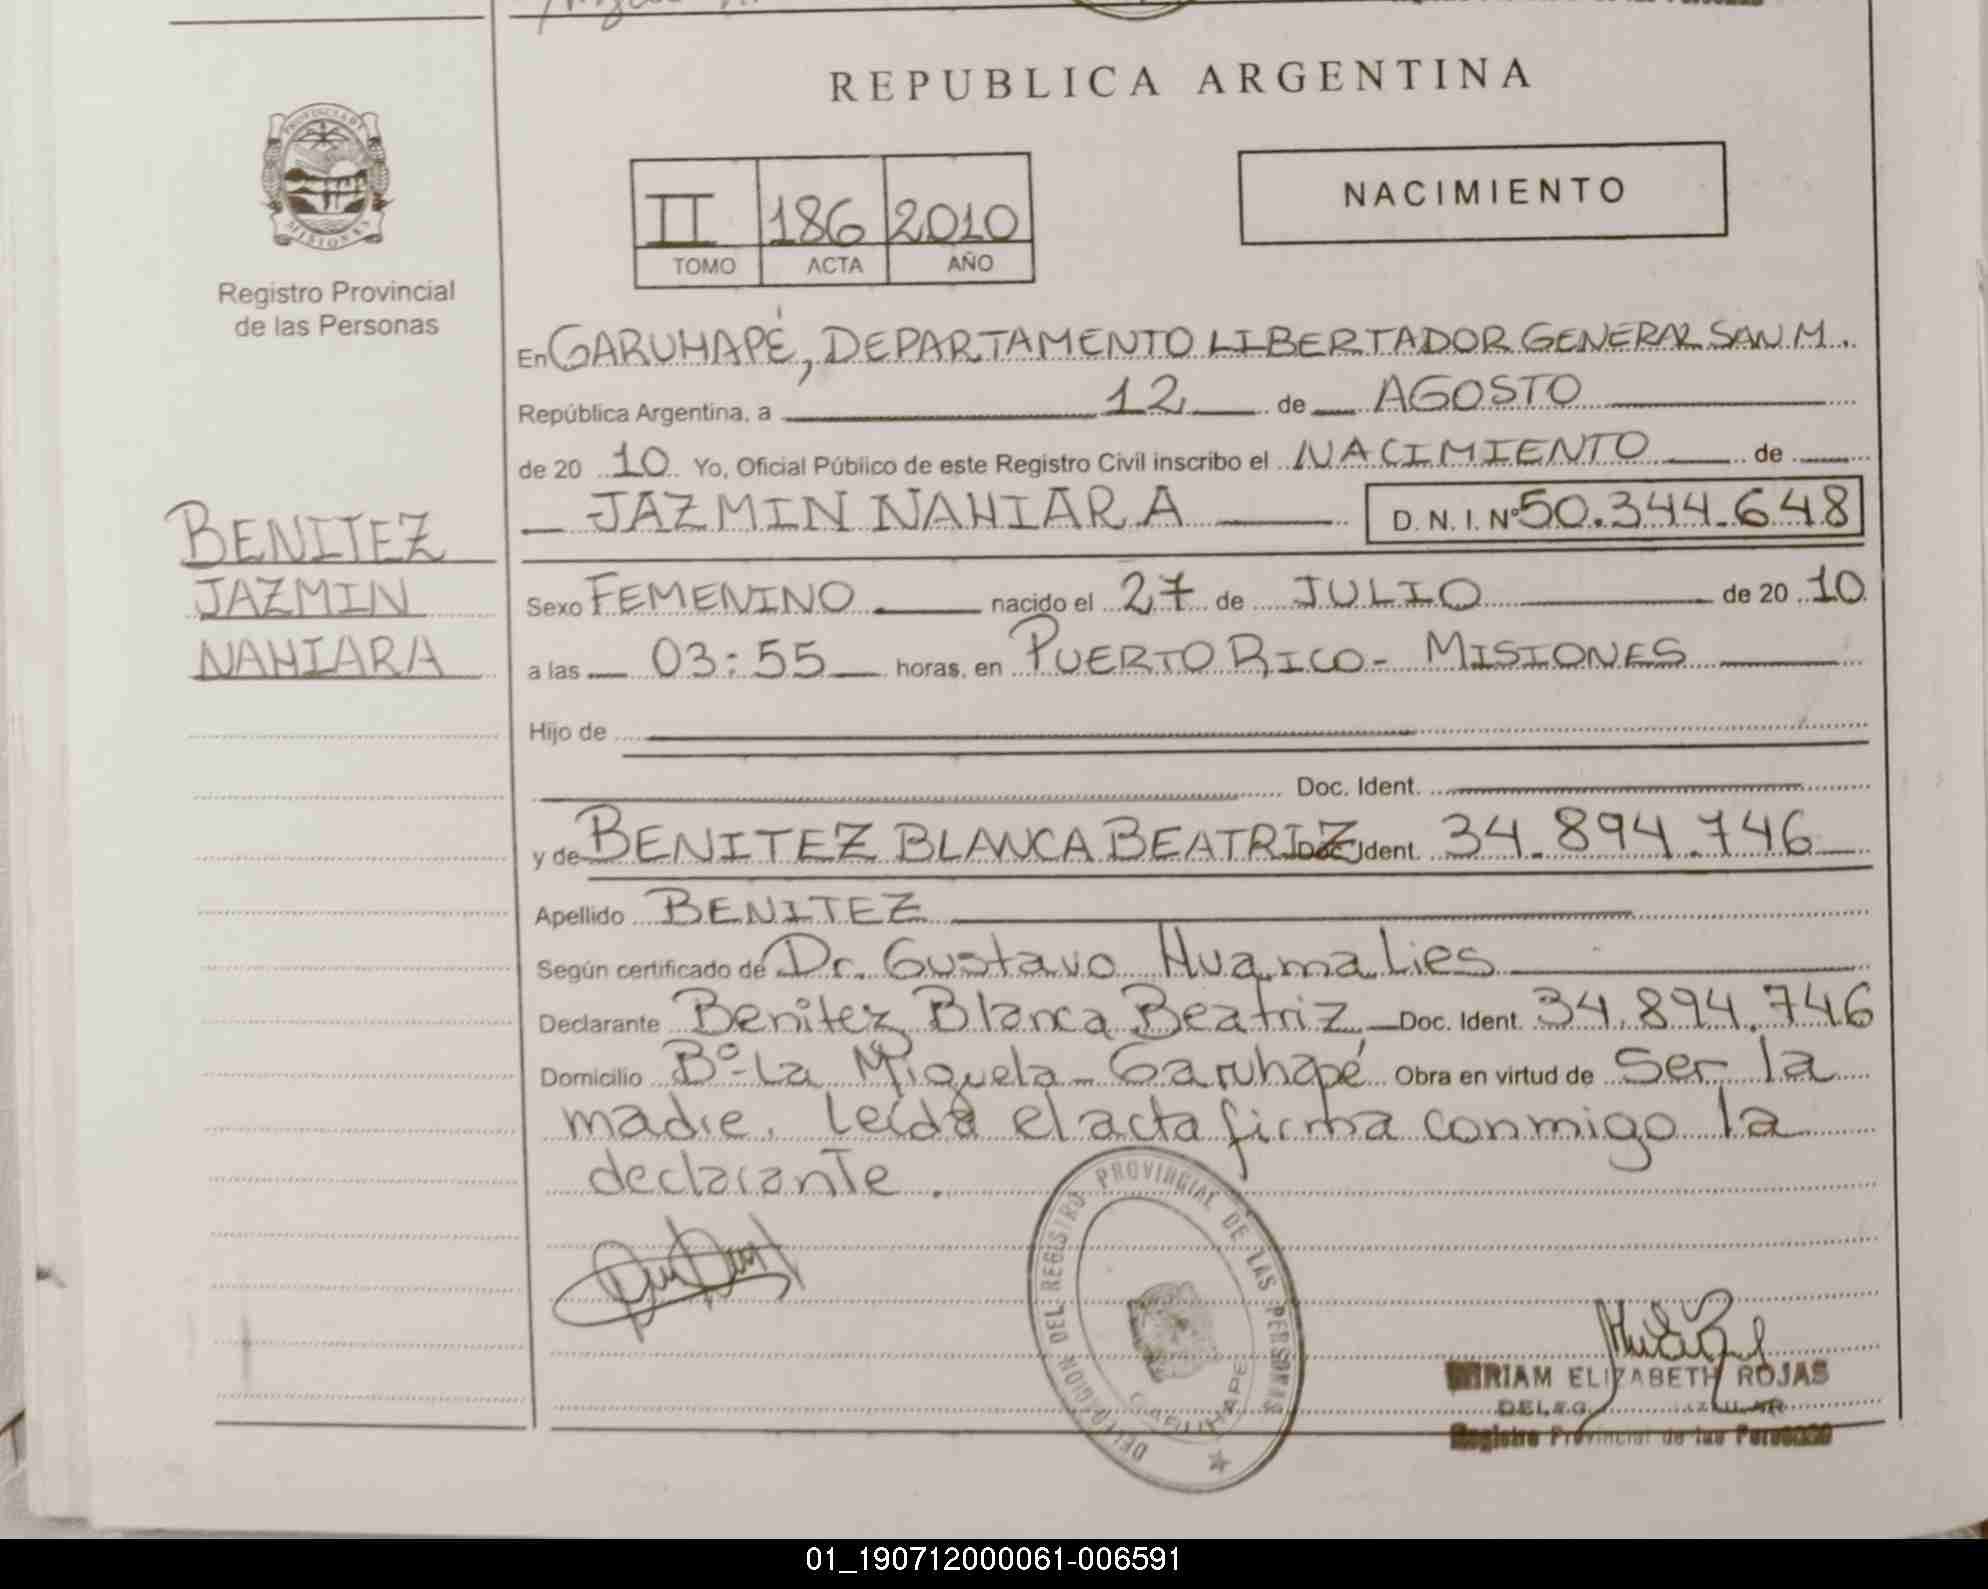 REPUBLICA ARGENTINA
PROVINCIA DE
MISIONES
Registro Provincial
de las Personas
II 186 2010
TOMO ACTA AÑO
NACIMIENTO
En GARUHAPÉ, DEPARTAMENTO LIBERTADOR GENERAL SAN M.
República Argentina, a 12 de AGOSTO
de 20 10 Yo, Oficial Público de este Registro Civil inscribo el NACIMIENTO de
JAZMIN NAHIARA D.N.I. Nº 50.344.648
BENITEZ
JAZMIN
NAHIARA
Sexo FEMENINO nacido el 27 de JULIO de 20 10
a las 03:55 horas, en PUERTO RICO - MISIONES
Hijo de
Doc. Ident.
y de BENITEZ BLANCA BEATRIZ Doc. Ident. 34.894.746
Apellido BENITEZ
Según certificado de Dr. Gustavo Huamalies
Declarante Benitez Blanca Beatriz Doc. Ident. 34.894.746
Domicilio Bº La Miguela - Garuhapé Obra en virtud de Ser la
madre. Leída el acta firma conmigo la
declarante.
DELEGACION DEL REGISTRO PROVINCIAL DE LAS PERSONAS
GARUHAPE
MIRIAM ELIZABETH ROJAS
Registro Provincial de las Personas
01_190712000061-006591